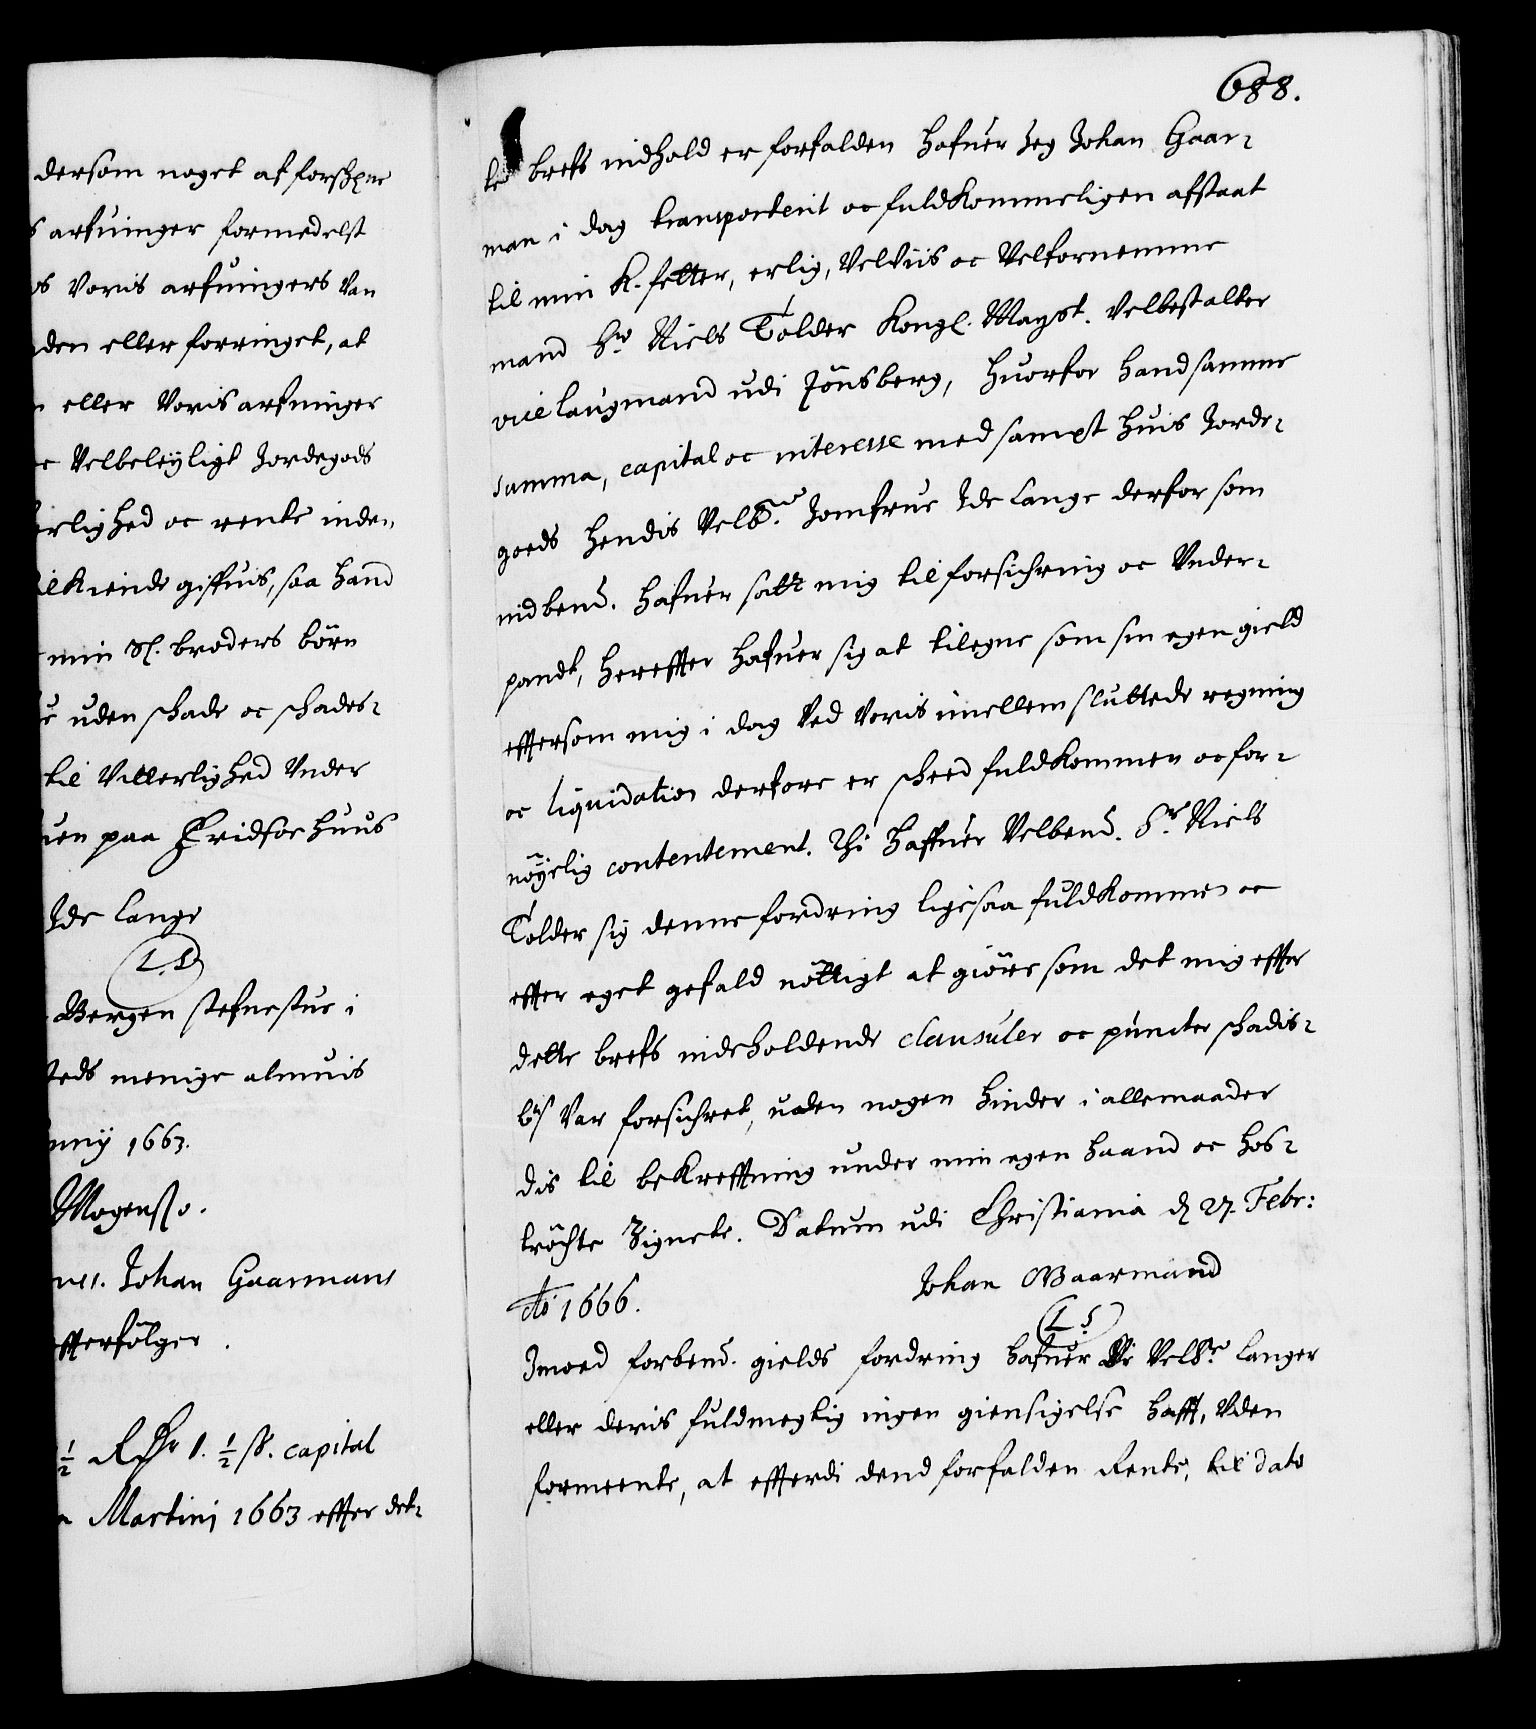 dersom noget af forschne
arfuinger formedelst
Voris arfuingers Van
den eller forringet, at
eller Voris arfuinger
Velbeleyligt Jordegods
erlighed oc rente inden,
kiende giffuis, saa hand
min Sl. broders börn
uden schade oc schades-
til Vitterlighed Vnder
uen paa Fridsøe huus
Ide Lange
L.S
Bergen stefnestue i
steds menige almuis
1663.
Mogensø.
Johan Gaarmans
efterfölger.
½ Rdr 1. ½ ß. capital
Martini 1663 effter det-
688.
te brefs indhold er forfalden hafuer Jeg Johan Gaar-
man i dag transporterit oc fuldkommeligen afstaat
til min K. fetter, erlig, Velviis oc Velfornemme
mand Hr Niels Tolder Kongl. Mayst. Velbestalter
vice laugmand udi Tönsberg, huorfor hand samme
summa, capital oc interesse med sampt huis Jorde-
goeds hendis Velb. Jomfrue Ide Lange derfor som
indbend. hafuer satt mig til forsichring oc Vnder-
pandt, hereffter hafuer sig at tilegne som sin egen gield
effersom mig i dag Ved Voris imellem sluttede regning
oc liquidation derfore er scheed fuldkommen oc for-
nöyelig contentement. Thi haffuer Velbend. Sr. Niels
Tolder sig denne fordring ligesaa fuldkommen oc
effter eget gefald nöttigt at giöre som det mig effter
dette brefs indeholdende clausuler oc puncter schadis-
löß Var forsichret, uden nogen hinder i allemaader
dis til bekrefftning under min egen haand oc hos-
tröchte Zignete. Datum udi Christiania d 27. Febr:
Ao 1666.
Johan Gaarmand
L S
Imoed forbend. gields fordring hafuer De Velbr. Langer
eller deris fuldmegtig ingen giensigelse hafft, Uden
formeente, at efferdi dend forfalden Rente, til dato